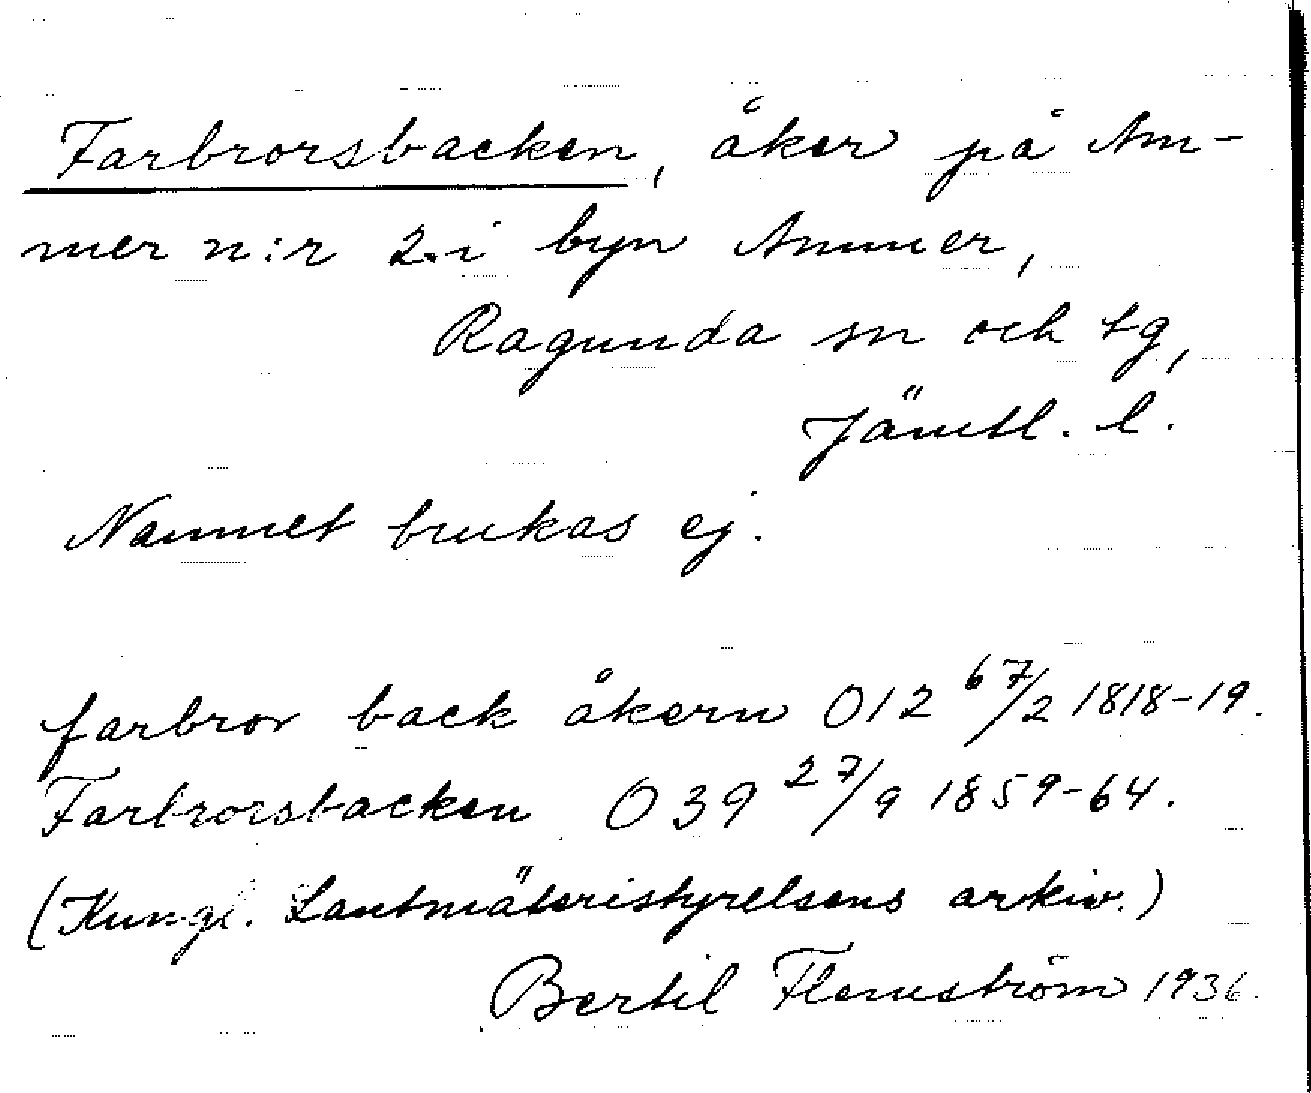 Farbrorsbacken, åker på Am-
mer n:r 2 i byn Ammer,
Ragunda sn och tg,
Jämtl. l.
Namnet brukas ej.
farbror back åkern 012 67/2 1818-19.
Farbrorsbacken 039 27/9 1859-64.
(Kungl. Lantmäteristyrelsens arkiv.)
Bertil Flemström 1936.